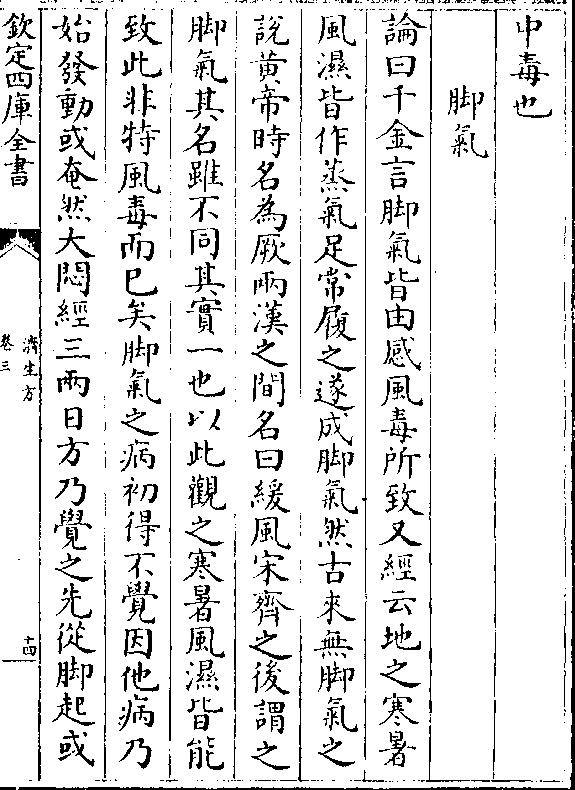 中毒也
脚氣
論曰千金言脚氣皆由感風毒所致又經云地之寒暑
風濕皆作蒸氣足常履之遂成脚氣然古來無脚氣之
說黄帝時名為厥兩漢之間名曰緩風宋齊之後謂之
脚氣其名雖不同其實一也以此觀之寒暑風濕皆能
致此非特風毒而巳矣脚氣之病初得不覺因他病乃
始發動或奄然大悶經三兩日方乃覺之先從脚起或
欽定四庫全書
濟生方
卷三
十四